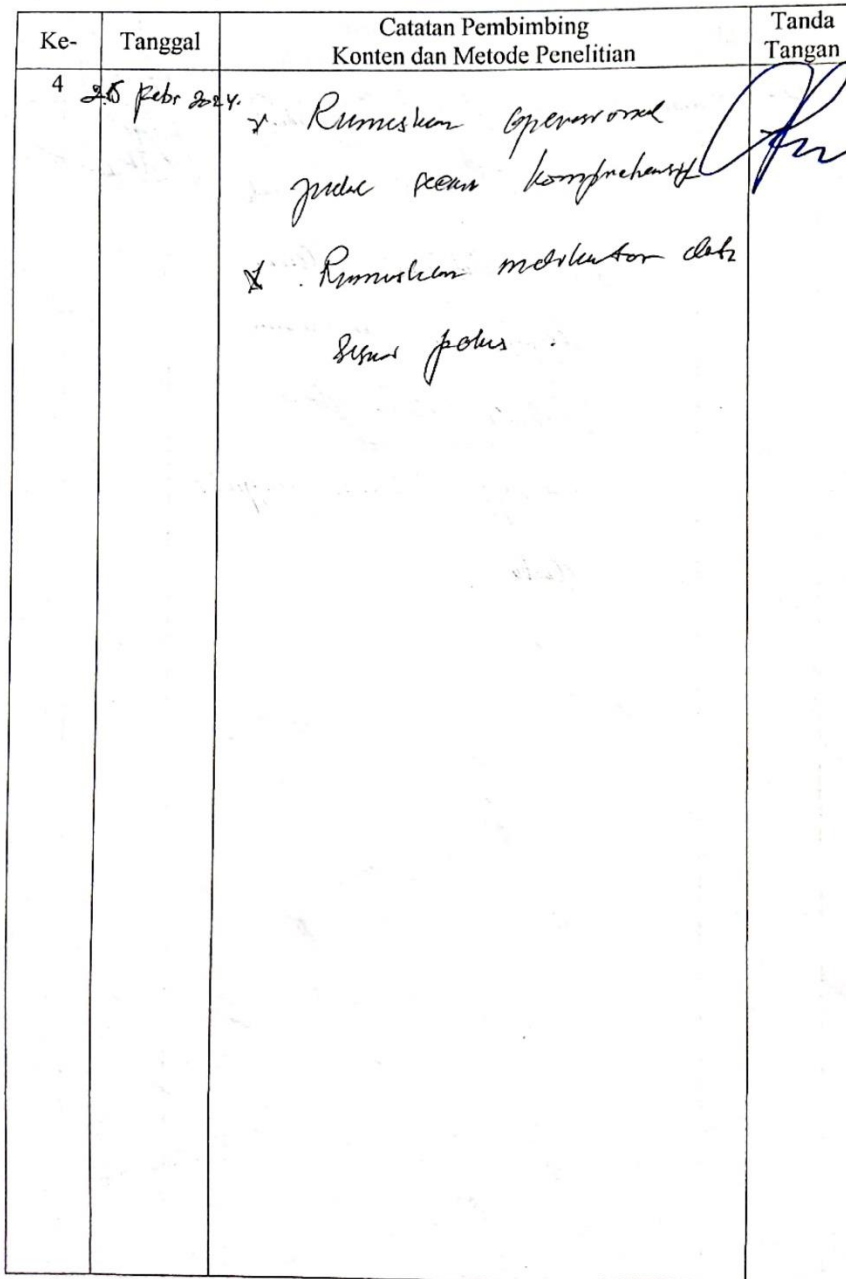 Ke-
Tanggal
Catatan Pembimbing
Konten dan Metode Penelitian
Tanda
Tangan
4
Febr 2024.
Rumuskan operasional
judul secara komprehensif
Rumuskan indikator data
sesuai fokus.